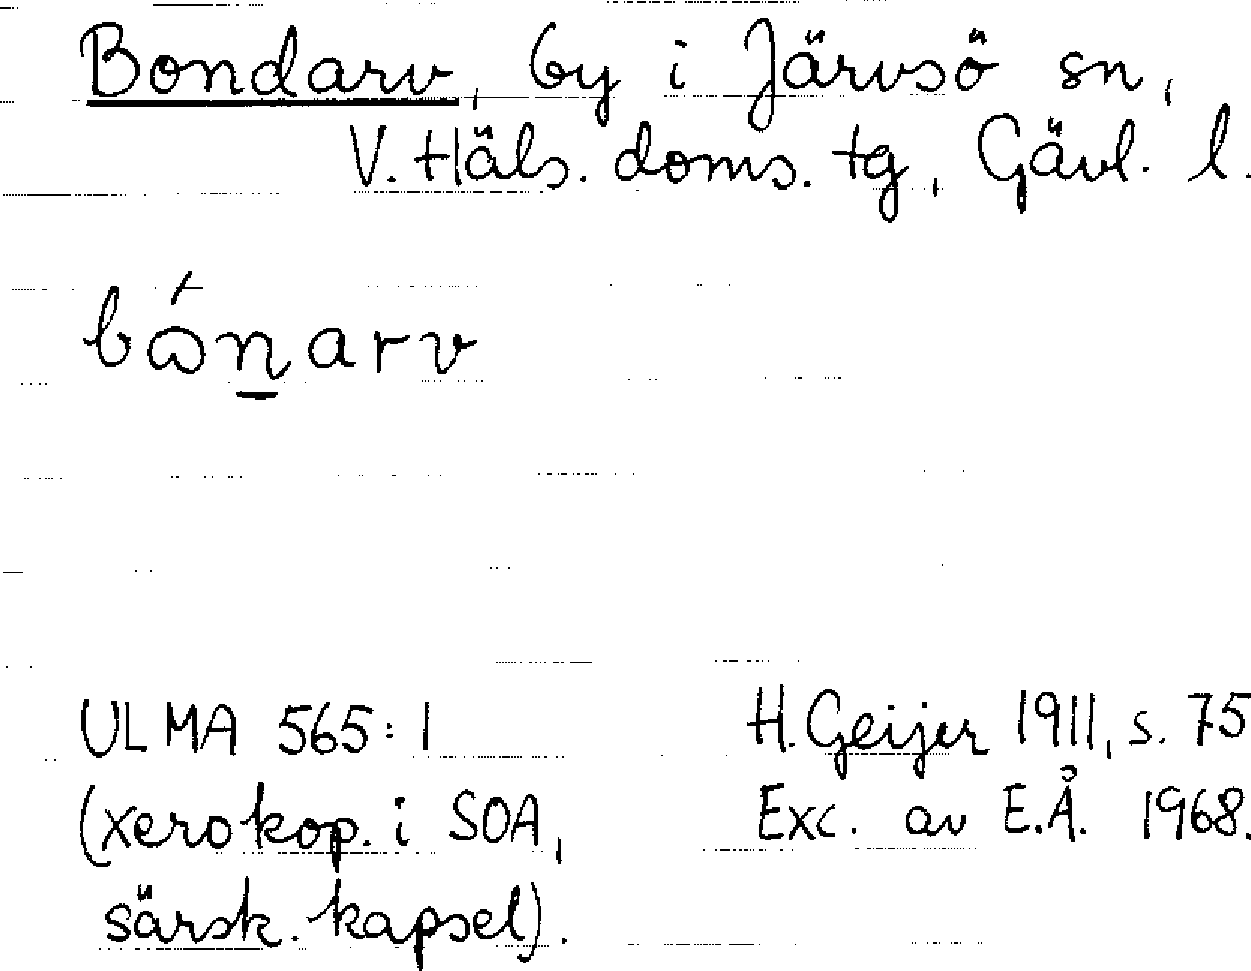 Bondarv, by i Järvsö sn,
V. Häls. doms. tg, Gävl. l.
bɷ́n̲arv
ULMA 565:1
(xerokop. i SOA,
särsk. kapsel).
H. Geijer 1911, s. 75
Exc. av E.Å. 1968.